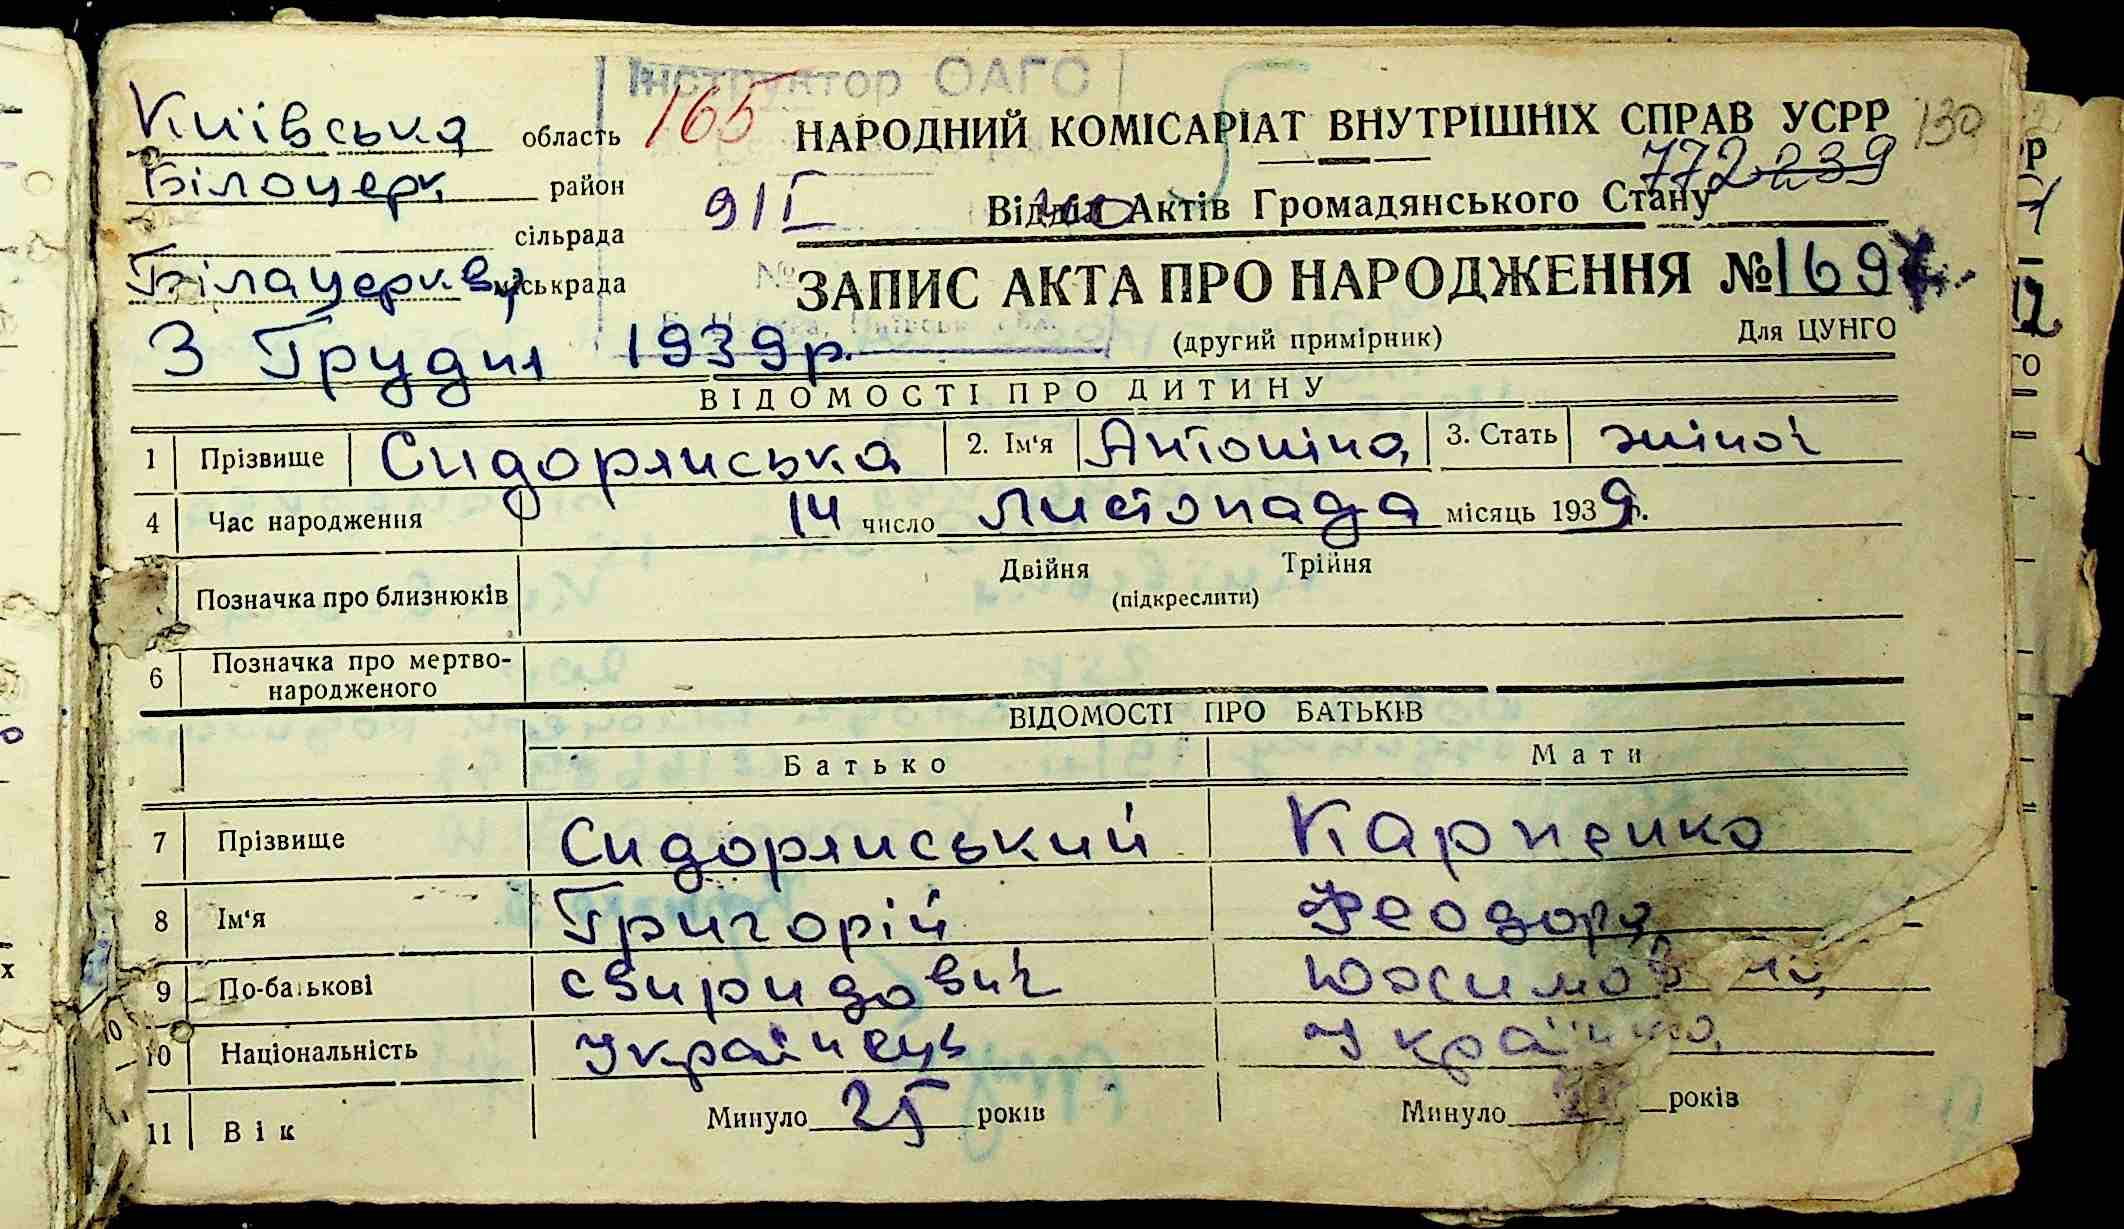 Інструктор ОАГС
Київська область 165 НАРОДНИЙ КОМІСАРІАТ ВНУТРІШНІХ СПРАВ УСРР 130
Білоцерк район 91 Відділ Актів Громадянського Стану 772 239
сільрада
Білацеркв, міськрада ЗАПИС АКТА ПРО НАРОДЖЕННЯ № 169
3 Грудня 1939 р. (другий примірник) Для ЦУНГО
ВІДОМОСТІ ПРО ДИТИНУ
1 Прізвище Сидорянська 2. Ім'я Антоніна 3. Стать жіноч
4 Час народження 14 число листопада місяць 1939 р.
Позначка про близнюків Двійня Трійня
(підкреслити)
6 Позначка про мертво-
народженого
ВІДОМОСТІ ПРО БАТЬКІВ
Батько Мати
7 Прізвище Сидорянський Карпенко
8 Ім'я Григорій Феодора
9 По-батькові Свиридович
10 Національність Українець Українка
11 Вік Минуло 25 років Минуло років